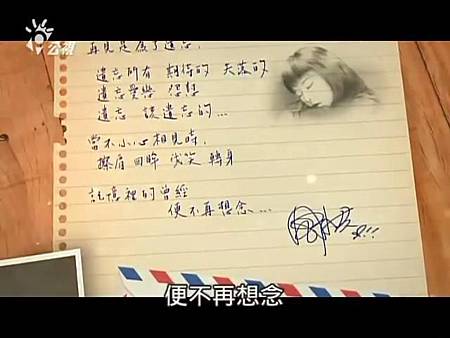 公視
再見是為了遺忘.
遺忘所有 期待的 失落的
遺忘愛戀
遺忘 該遺忘的...
當不小心相見時,
擦肩 回眸 淺笑 轉身
記憶裡的曾經
便不再想念...
便不再想念